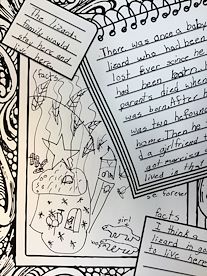 The lizards
family would
stay here and
There was once a baby
lizard who had been
lost. Ever since he
had been born
parent's died when
was born. After he
was two he found
home. Then he
a girlfriend
not married
lived in that
facts
forever
girl
facts
I think a
lizard is go
to live here